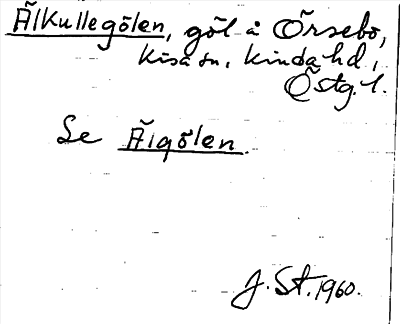 Älkullegölen, göl å Örsebo,
Kisa sn, Kinda hd,
Östg. l.
Se Älgölen.
J. St. 1960.